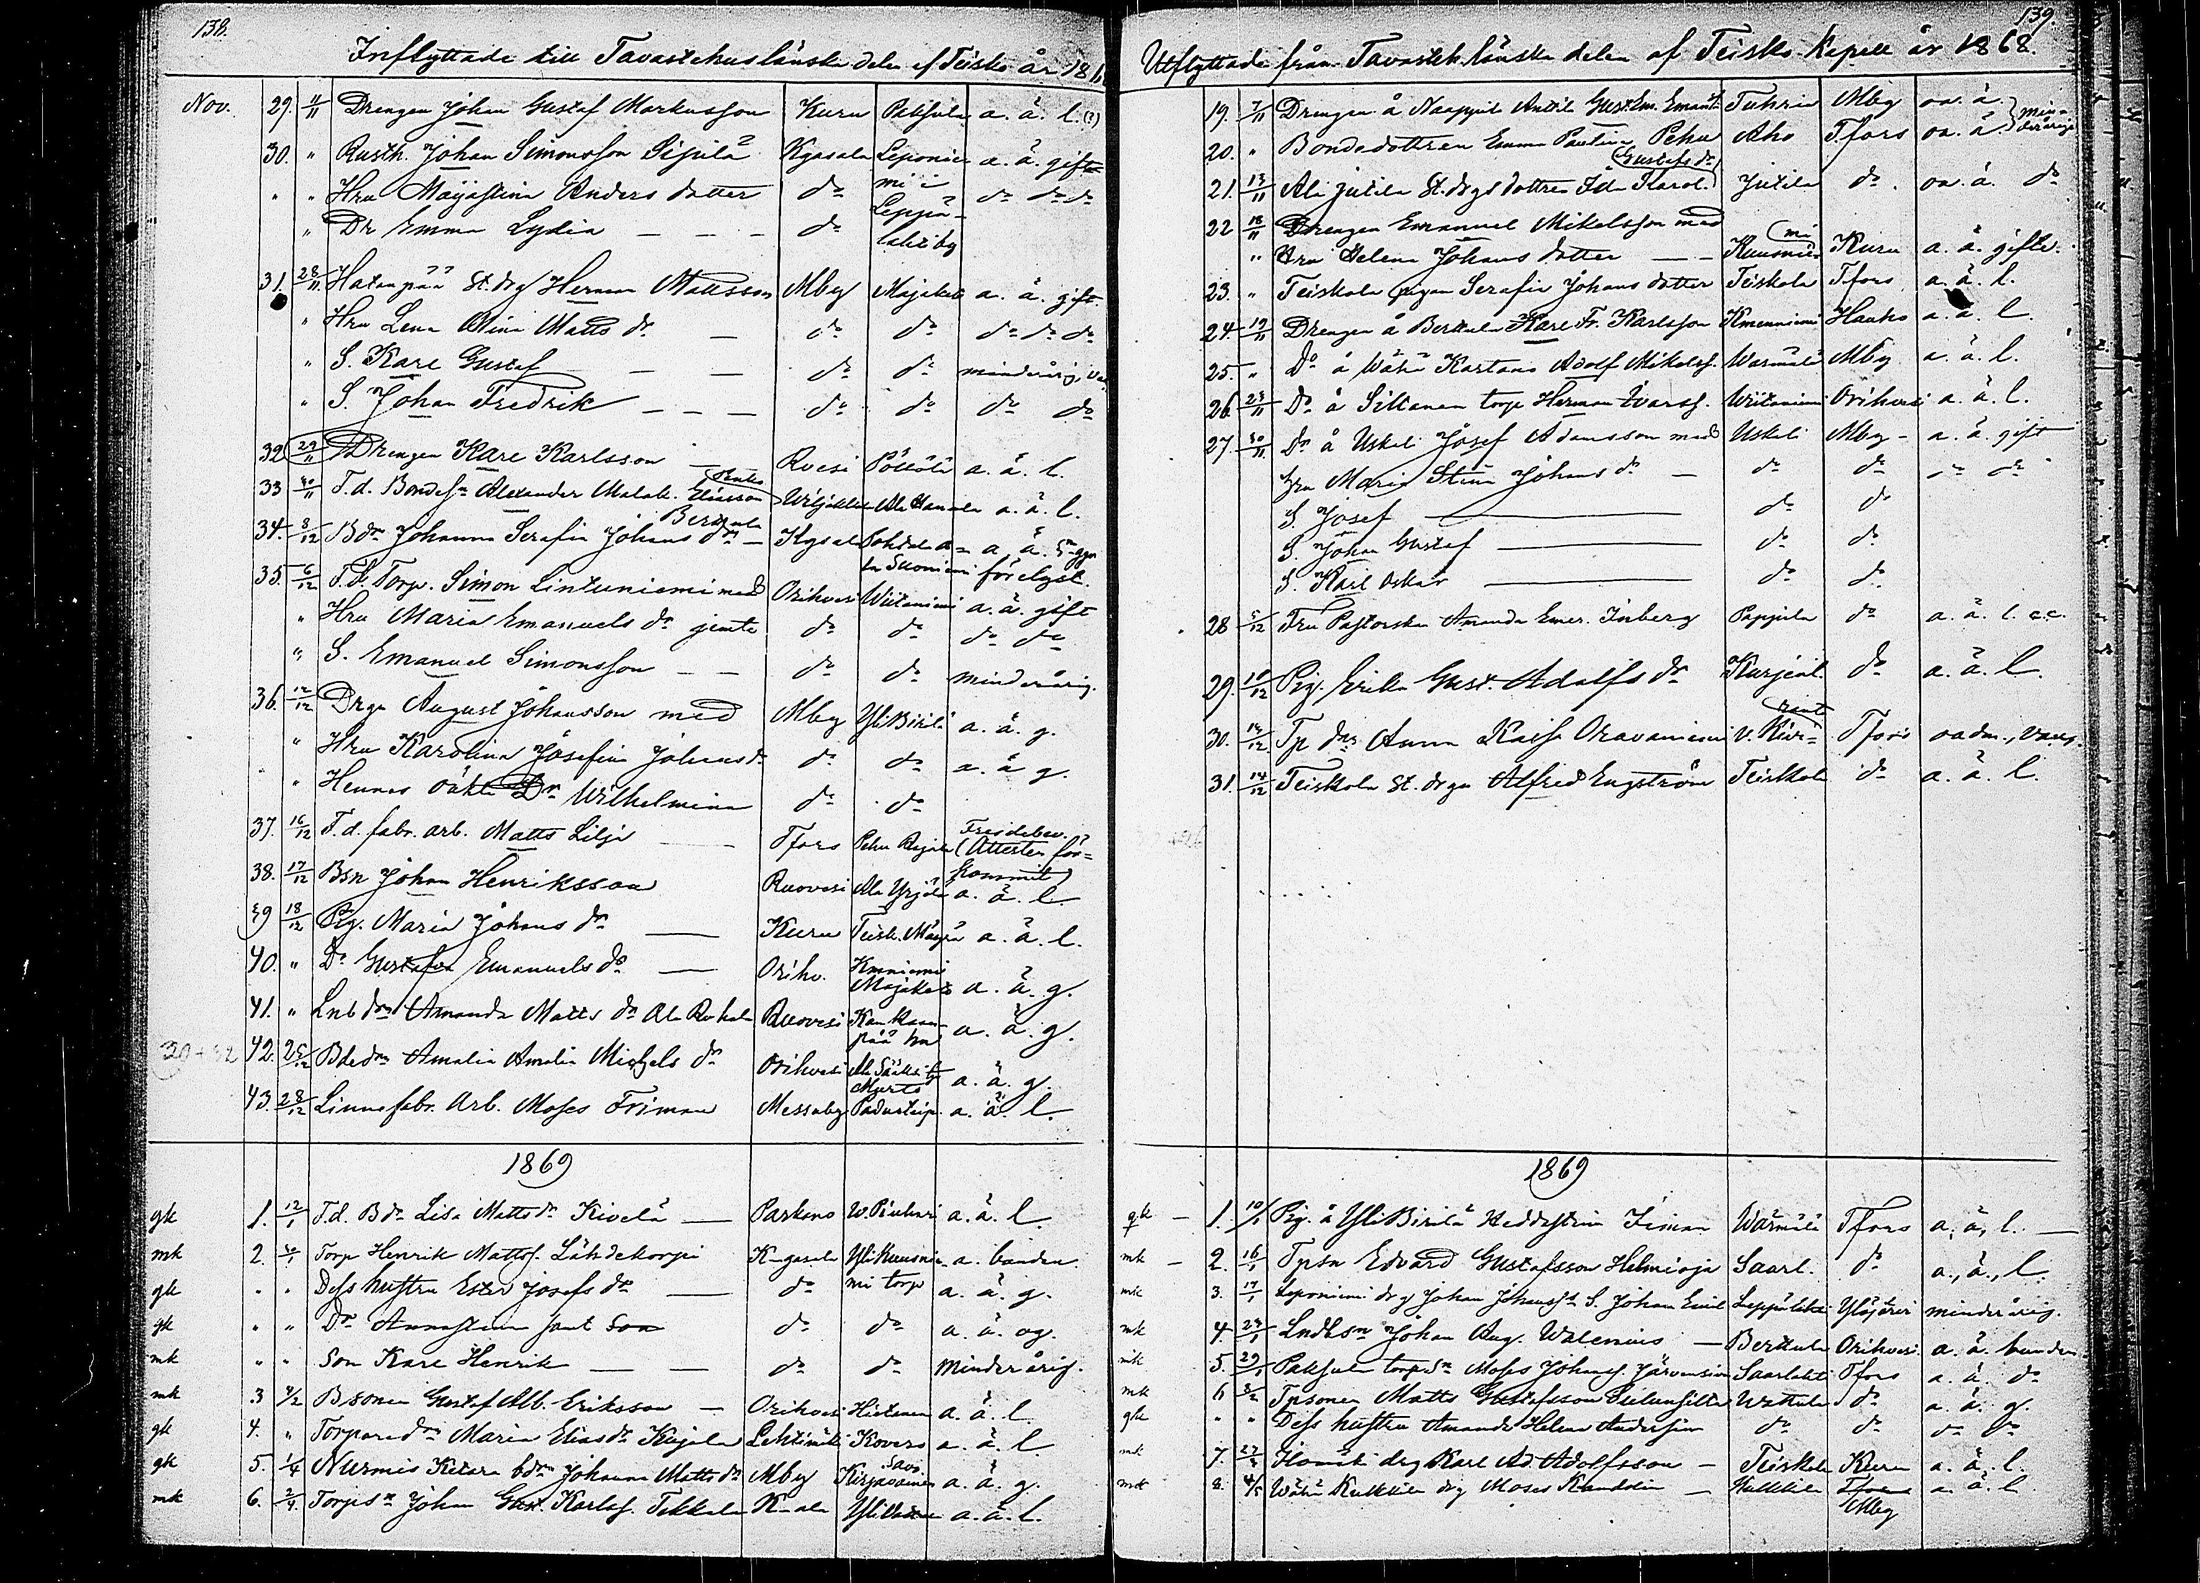 138.
Inflyttade till Tavastehus länska delen af Teisko år 186
Nov. 29. 11/11 Drengen Johan Gustaf Markusson Kuru Paksula a. ä. l. (3)
30. " Rusth. Johan Simonsson Sipilä Kgasala Leponie a. ä. gift
" " Hru Majastina Anders dotter do mi i do do do
" Dr Emma Lydia — — — do Leppä-
lahti by
31. 28/11 Hatanpää St. drg Herman Mattsson Mby Majakt a. ä. gift
" Hru Lena Stina Matts dr — do do do do do
" S. Karl Gustaf — — do do minderårig
" S. Johan Fredrik — — — do do do do
32 29/11 Drengen Karl Karlsson Rvesi Pöllölä a. ä. l.
33 30/11 T. d. Bondesn Alexander Eliasson a. ä. l.
34. 3/12 Bdr Johanna Serafia Johans dr — Kgsala
Suoniemi förelyst.
35. 6/12 T. d. Torp. Simon Lintuniemi med Orihvesi Wiitaniemi a. ä. gift
" Hru Maria Emanuels dr jemte do do do do
" S. Emanuel Simonsson — — do do minderårig.
36. 12/12 Drgn August Johansson med Mby Yli Birilä a. ä. g.
" Hru Karolina Josefina Johans dr do do a. ä. g.
" Hennes oäkta Dr Wilhelmina do do
37. 16/12 T. d. fabr. arb. Matts Lilja — Tfors Pehu Frejdebev.
(Attesten för=
kommit)
38. 17/12 Bsn Johan Henriksson Ruovesi Ala Yrjölä a. ä. l.
39 18/12 Pig. Maria Johans dr — Kuru Teisk. Mäyrä a. ä. l.
40. " Do Gustafva Emanuels dr — Orihv. Kmniemi
Majakt a. ä. g.
41. " Lnb drn Amanda Matts dr Ala Rokala Ruovesi Kan Maan-
pää a. ä. g.
20+32 42. 25/12 Bdedrn Amalia Amalia Michels dr Orihvesi a. ä. g.
43. 28/12 Linnefabr. Arb. Moses Friman Messuby Padustaip. a. ä. l.
1869
gk 1. 12/1 T. d. Bdr Lisa Matts dr Kivelä — Parkano W. a. ä. l.
mk 2. 20/1 Torp Henrik Mattss. Lähdekorpi K-gasala Yli Kuusnie- a. banden
gk " " Dess hustru Ester Josefs dr — do mi torp a. ä. g.
gk " " Dr Annastina samt Son do do a. ä. og.
mk " " Son Karl Henrik — — do do minderårig.
mk 3 4/2 Bsonen Gustaf Alb. Eriksson — Orihvesi Hietanen a. ä. l.
gk 4. " Torparedr Maria Elias dr Kujala Lehtimäki Kovero a. ä. l.
gk 5. 1/4 Nurmis Ketara bdr Johanna Matts dr Mby Savo
Kirjavainen a. ä. g.
mk 6. 2/4 Torpsn Johan Gust. Karlss. Tekkala K-ala Yli a. ä. l.
139.
Utflyttade från Tavasteh. länska delen af Teisko Kapell år 1868.
19. 7/11 Drengen å Naappila Antti Gust. Em. Emant Tuhria Mby oa. ä. min-
20. " Bondedottren Emma Paulina Pehu Aho Tfors oa. ä. derårige
(Gustafs dr
21. 13/11 Ala jutila St. drgs dottren Ida Karol.) Jutila do. oa. ä. do
22 18/11 Drengen Emanuel Mikelsson med
" Hru Helena Johans dotter — — Kuusnie(mi Kuru a. ä. gifte.
23. " Teiskola pigan Serafia Johans dotter Teiskola Tfors a. ä. l.
24. 19/11 Drengen å Berttula Karl Fr. Karlsson Kmenniemi Hauho a. ä. l.
25. " Do å Wähä Kartano Adolf Mikelss. Warmälä Mby a. ä. l.
26. 23/11 Do å Siltanen torp Herman Ivarss. Wiitaniemi Orihvesi a. ä. l.
27. 30/11 Dr å Uskali Josef Adamsson med Uskali Mby - a. ä. gift
Hru Maria Stina Johans dr — do do do do
S. Josef — do do
S. Johan Gustaf — do do
S. Karl Oskar — do do
28 5/12 Fru Pastorska Amanda Emer. Inberg Pappila do a. ä. l. c.c.
29. 10/12 Pig. Erika Gust. Adolfs dr Kurjeal. do a. ä. l.
30. 14/12 Tp drs Anna Kaisa Oravaniemi V. Kivi= ranta Tfors
31. 14/12 Teiskola St. drgn Alfred Engström Teiskola do a. ä. l.
1869
gk — 1. 10/1 Pig. å Yli Birilä Heddastina Wärmälä Tfors a. ä. l. —
mk — 2. 16/1 Tpsn Edvard Gustafsson Helmioja Saarl. do a., ä., l.
mk 3. 17/1 Leponiemi drg Johan Johanss sn S. Johan Emil Leppälahti Ylöjärvi minderårig.
mk 4 23/1 Lndbsn Johan Aug. Walenius — Berttula Orihvesi a. ä. banden
mk 5. 29/1 Paksula torp. sn Moses Johanss. Järvensivu Saarlahti Tfors a. ä. do
mk 6 3/2 Tpsonen Matts Gustafsson Wattula do a. ä. g.
gk " " Dess hustru Amanda Helena Andersson do do do do
mk 7. 27/2 drg Karl Ad. Adolfsson — Teiskola Kuru a. ä. l.
mk 8. 4/5 Wähä Kulkkila drg Moses Randelin — Kulkkila Tfors a. ä. l
Mby